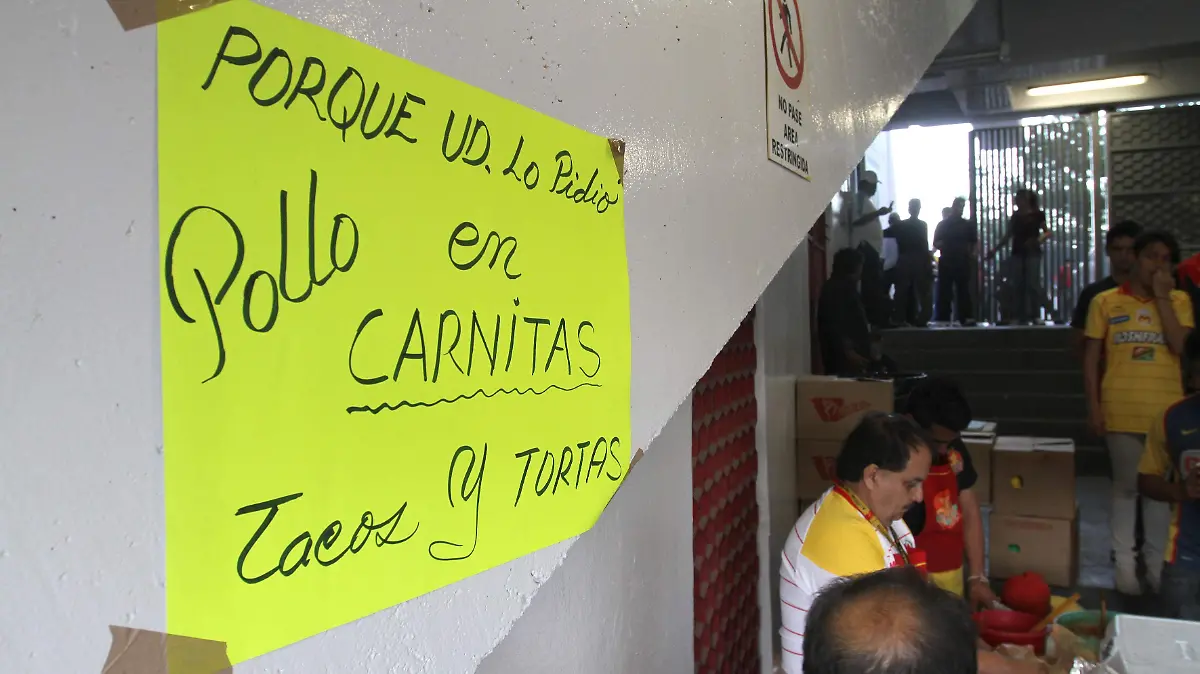 PORQUE UD. Lo Pidió
Pollo en
CARNiTAS
Tacos Y TORTAS
NO PASE
AREA
RESTRINGIDA